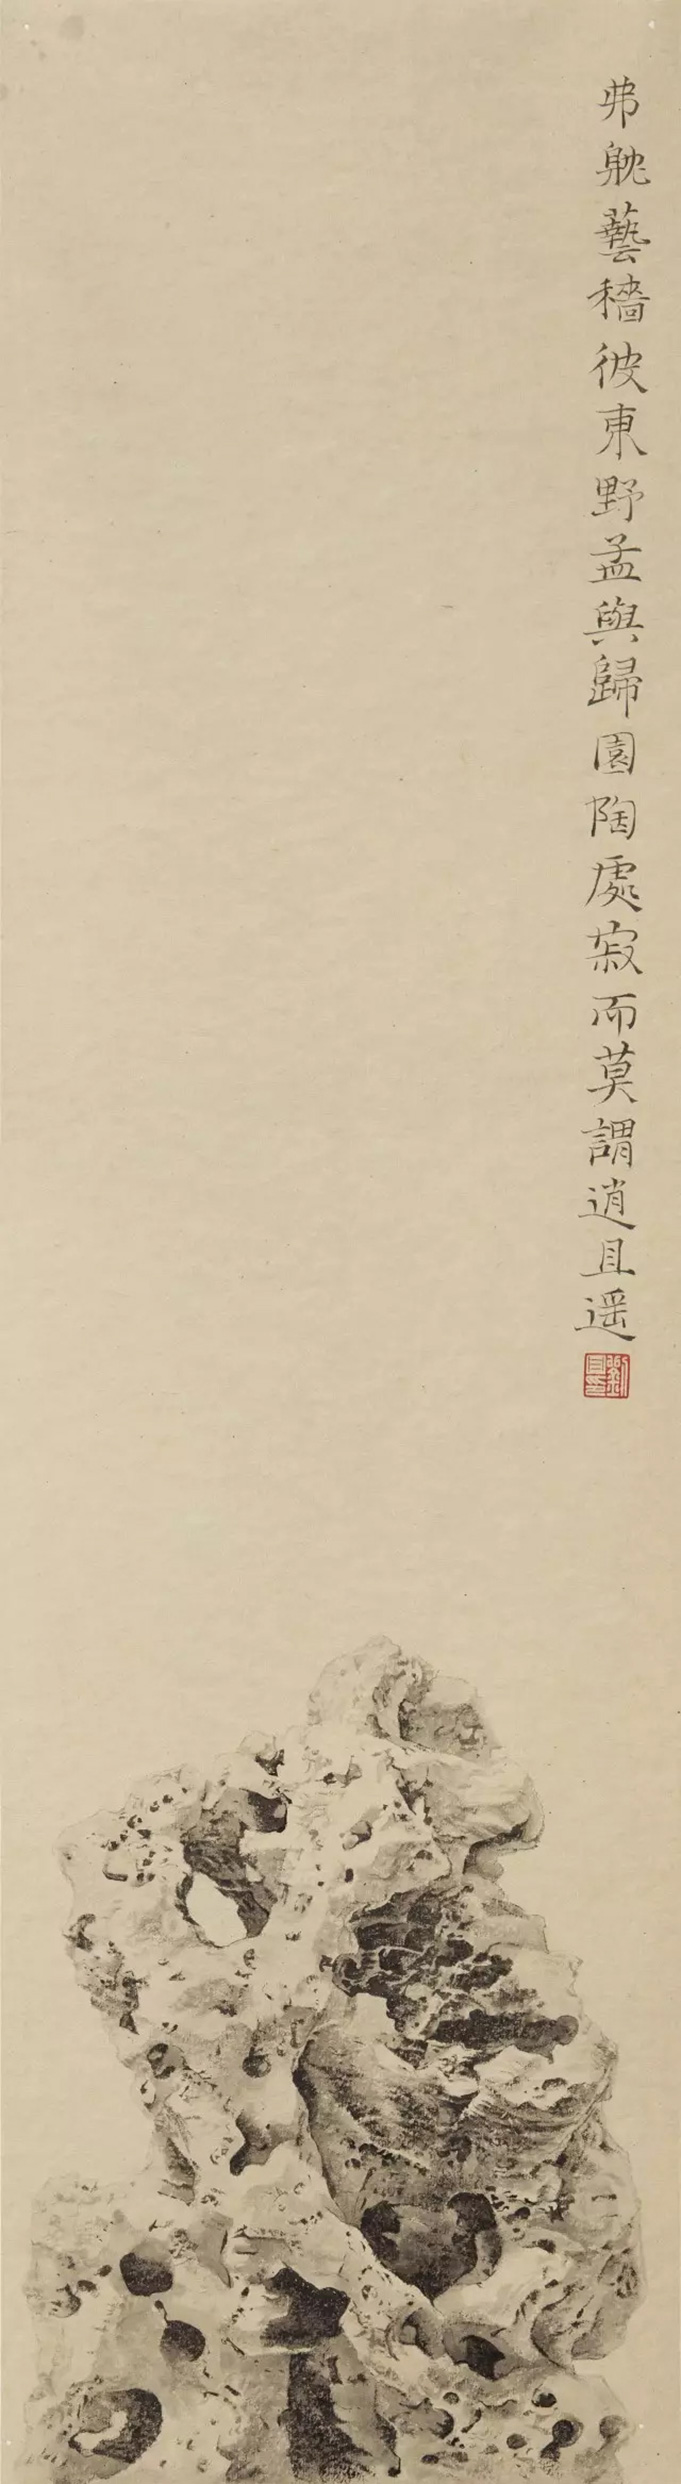 弗躭藝穡彼東野孟與歸園陶處寂而莫謂逍且遥